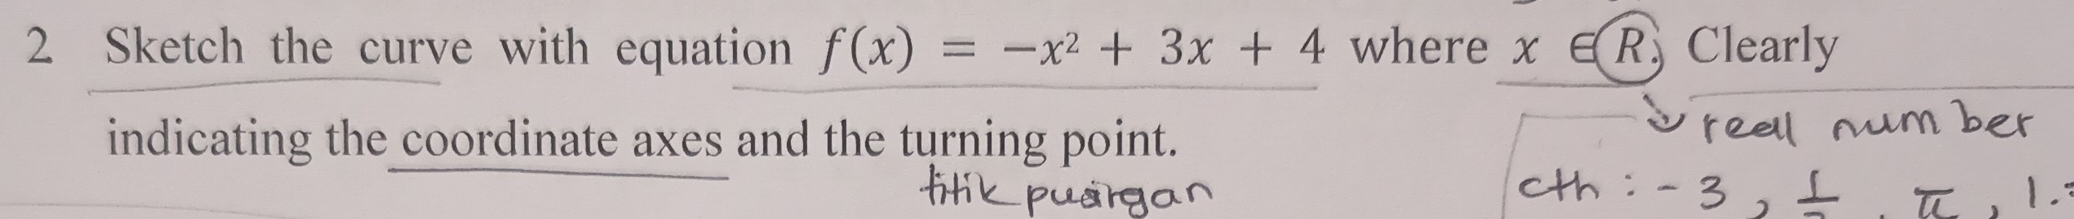 2 Sketch the curve with equation f(x) = −x² + 3x + 4 where x ∈ R. Clearly
indicating the coordinate axes and the turning point.
real number
titik pusingan
cth : - 3 , π , 1.